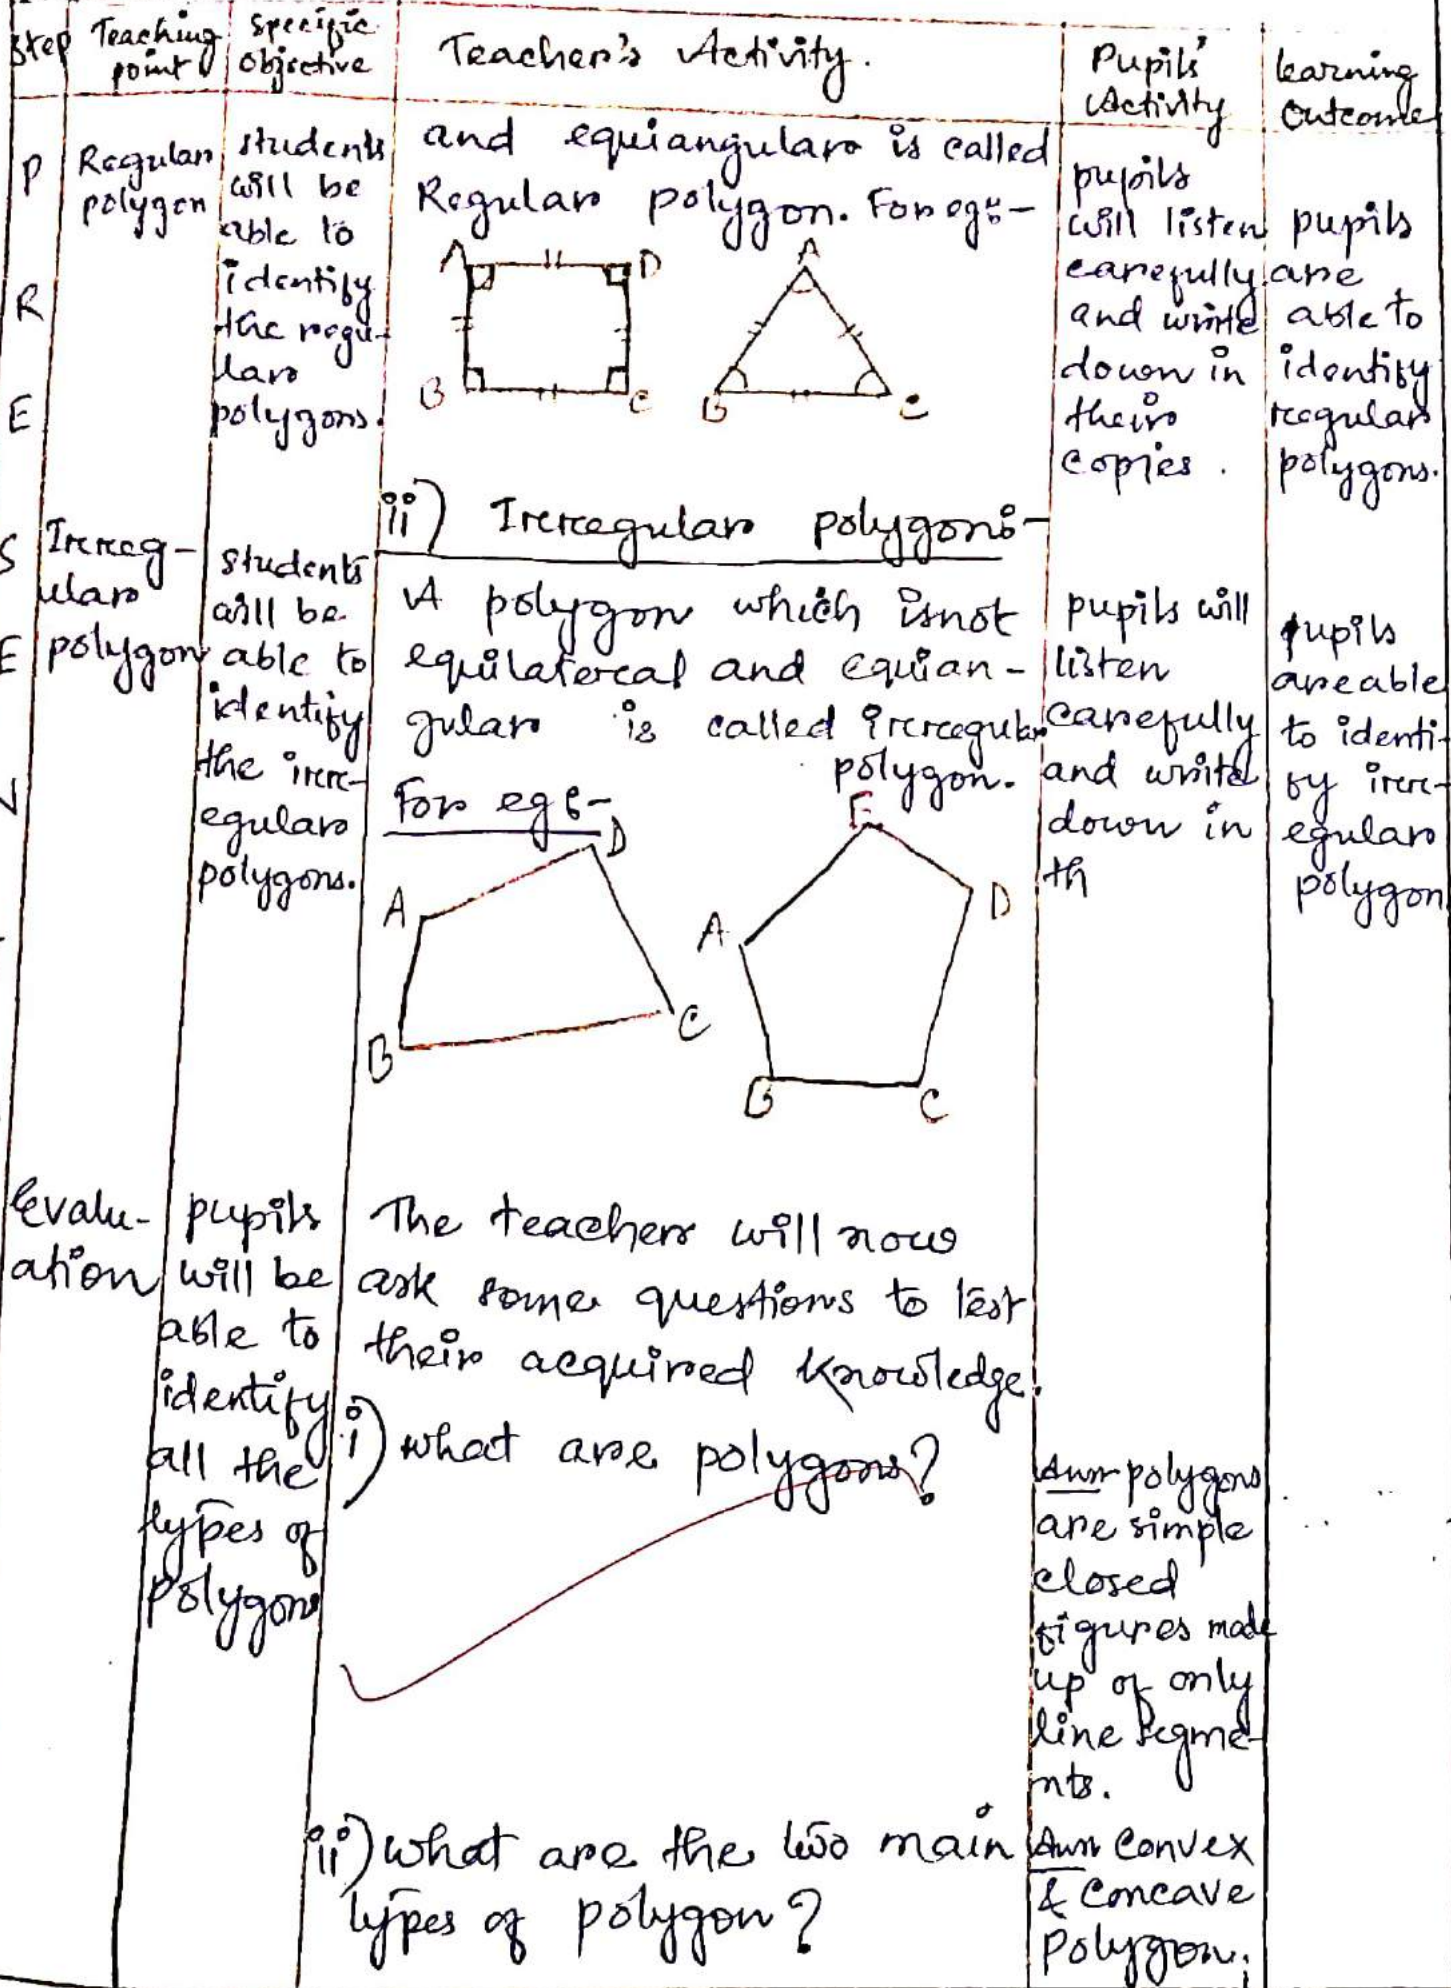 Step
Teaching
point
Specific
Objective
Teacher's Activity.
Pupils'
Activity
learning
Outcome
P
R
E
S
E
N
Regular
polygon
students
will be
able to
identify
the regu-
lar
polygons.
and equiangular is called
Regular polygon. For eg:-
A D
B C
A
B C
pupils
will listen
carefully
and write
down in
their
copies.
pupils
are
able to
identify
regular
polygons.
Irreg-
ular
polygon
students
will be
able to
identify
the irr-
egular
polygons.
ii) Irregular polygon:-
A polygon which is not
equilateral and equian-
gular is called irregular
polygon.
For eg:-
D
A
B
C
E
A
D
B
C
pupils will
listen
carefully
and write
down in
th
pupils
are able
to identi-
fy irr-
egular
polygon
Evalu-
ation
pupils
will be
able to
identify
all the
types of
polygon
The teacher will now
ask some questions to test
their acquired knowledge.
i) what are polygons?
Ans polygons
are simple
closed
figures made
up of only
line segme-
nts.
ii) what are the two main
types of polygon?
Ans Convex
& Concave
Polygon.